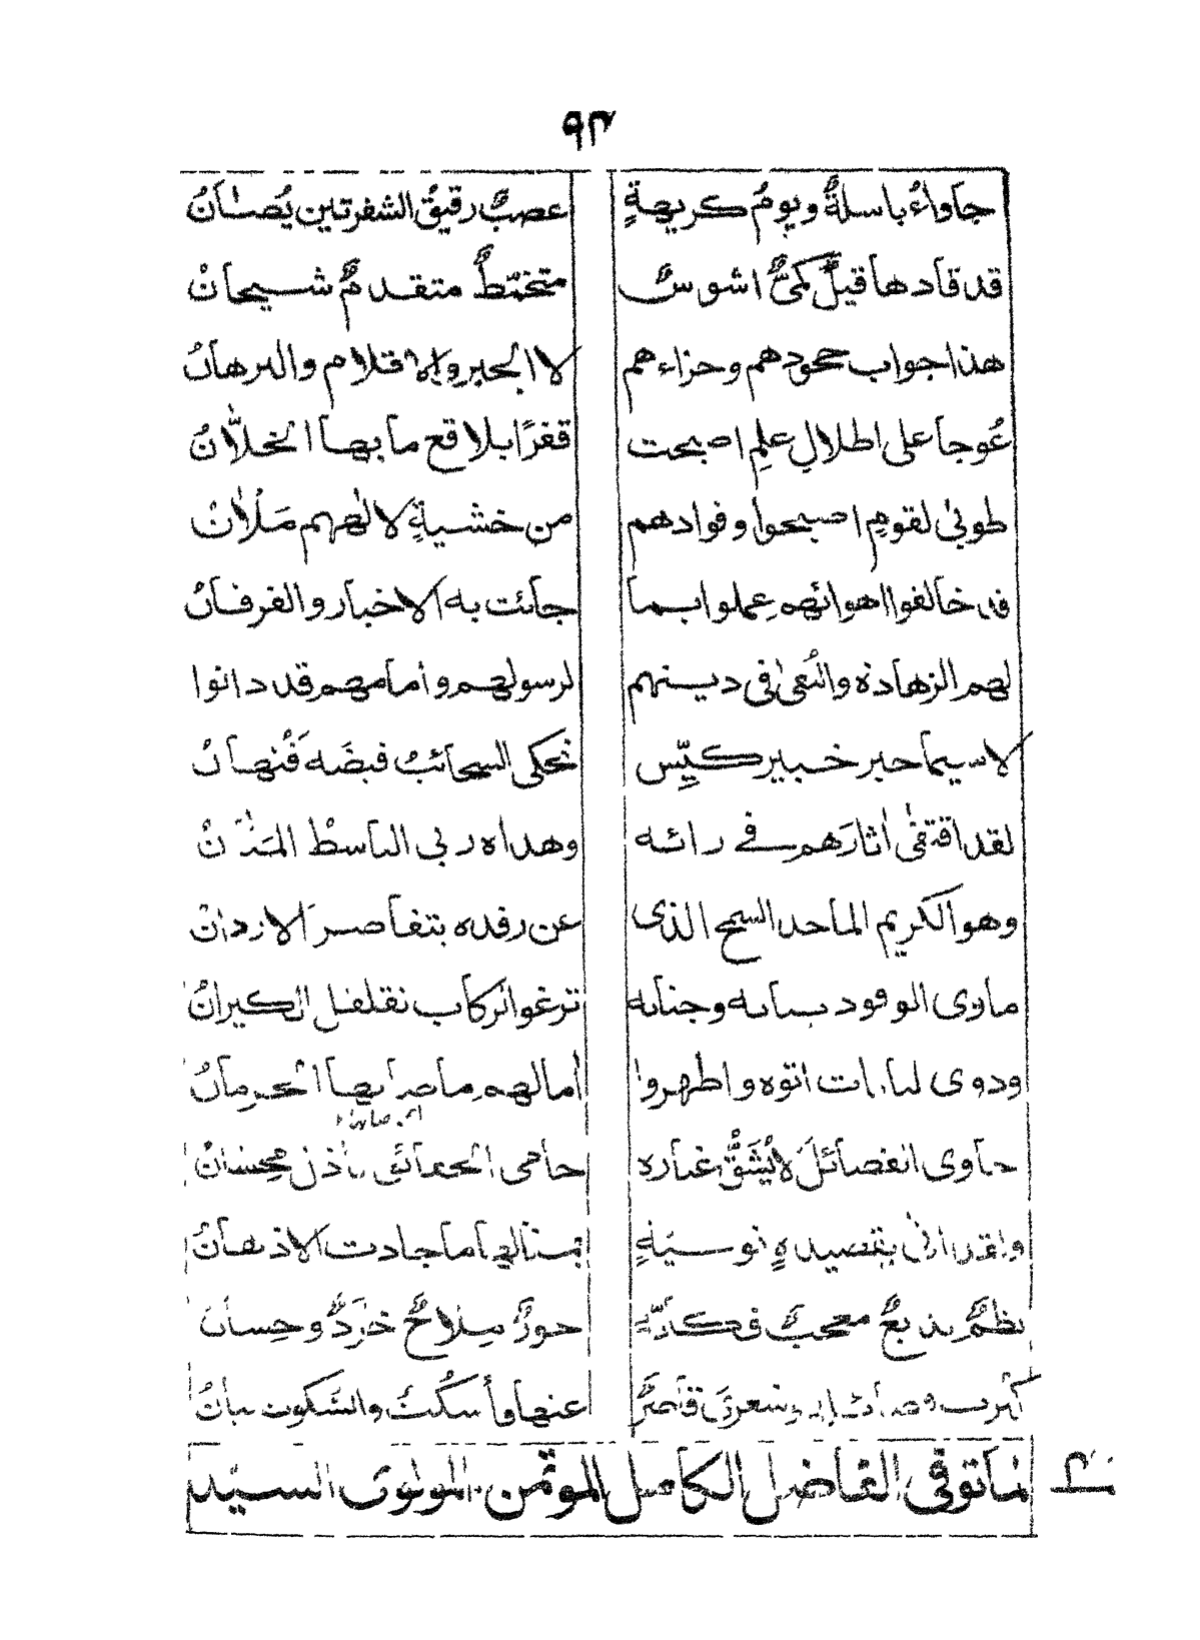 ٩٣
جأواءُ باسلةٌ ويومُ كريهةٍ عصبٌ رقيقُ الشفرتين يُصٰانُ
قد قادها قيلٌ كمىٌّ اشوسٌ متخمّطٌ متقدمٌ شيحانْ
هذا جواب جحودهم وجزاءهم لا الحبر والاقلام والبرهانُ
عُوجا على اطلالِ علمٍ اصبحت قفرًا بلاقع ما بها الخلّانُ
طوبىٰ لقومٍ اصبحوا وفوادهم من خشيةٍ لالٰههم مَلْاٰنْ
قد خالفوا اهوائهم عملوا بما جائت به الاخبار والفرقانُ
لهم الزهادة والتُقىٰ فى دينهم لرسولهم وأمامهم قد دانوا
لاسيما حبر خبير كيِّس تحكى السحائبُ فيضَه تَهْتانُ
لقد اقتفىٰ اٰثارَهم فے رائه وهداه ربى الباسطْ المَنّانْ
وهو الكريم الماجد السمح الذى عن رفده يتقاصر الازدانْ
ماوى الوفود ببابه وجنابه ترغو الركاب تقلقل الكيرانُ
وذوى لبانات اتوه واظهروا أمالهم ما صابها الحرمانُ
اى صابهاء
حاوى الفضائلَ لا يُشَقُّ غباره حامى الحقائق
ولقد اتىٰ بقصيدةٍ بمثالها ما جادت الاذهانُ
نظمٌ بديعٌ معجبٌ فكأنّه حورٌ مِلاحٌ خرّدٌ وحسانُ
عنها وأسكُتُ والسكوت بيانُ
لما توفى الفاضل الكامل المؤتمن المولوى السيد